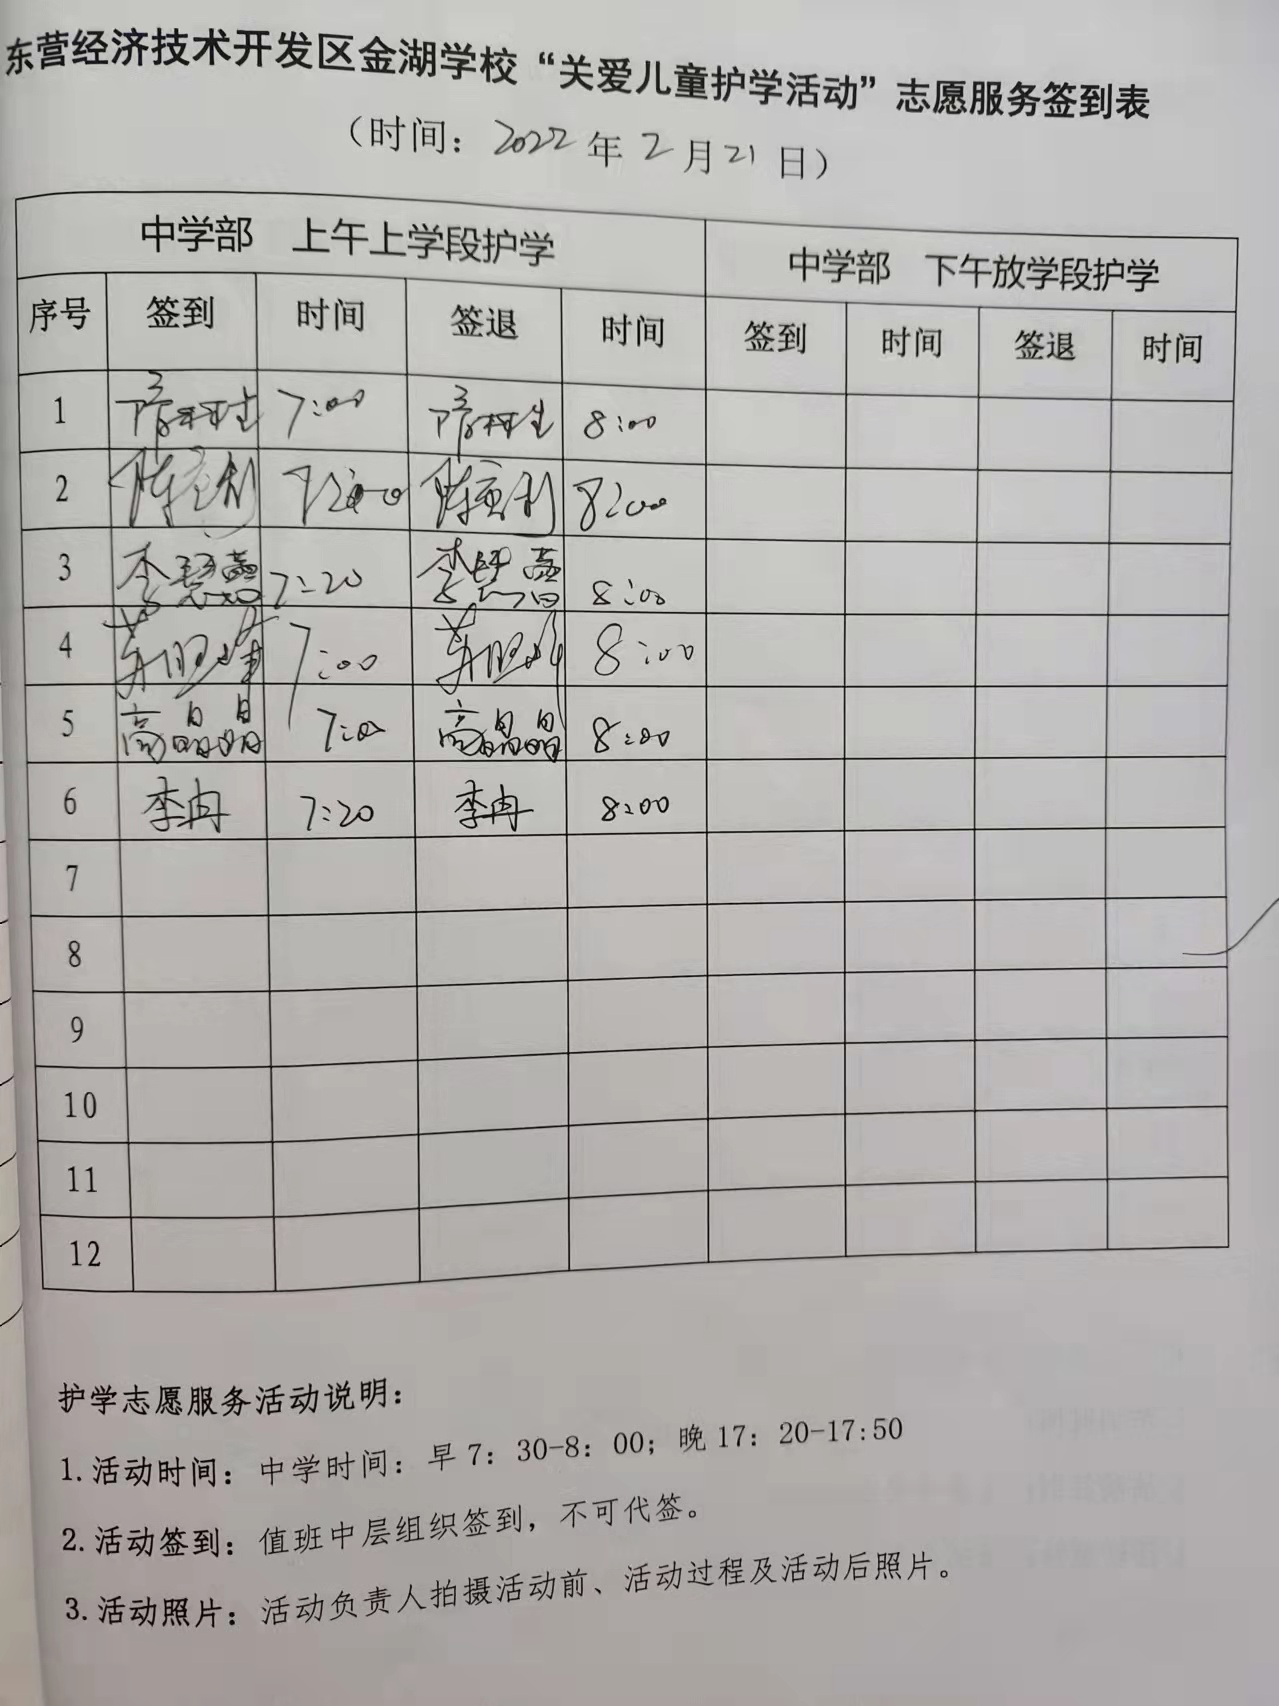 东营经济技术开发区金湖学校“关爱儿童护学活动”志愿服务签到表
（时间：2022年2月21日）
中学部 上午上学段护学 中学部 下午放学段护学
序号 签到 时间 签退 时间 签到 时间 签退 时间
1 7:00 8:00
2 7:00 8:00
3 李慧 7:20 李慧 8:00
4 7:00 8:00
5 高晶晶 7:00 高晶晶 8:00
6 李冉 7:20 李冉 8:00
7
8
9
10
11
12
护学志愿服务活动说明：
1.活动时间：中学时间：早7：30-8：00；晚17：20-17:50
2.活动签到：值班中层组织签到，不可代签。
3.活动照片：活动负责人拍摄活动前、活动过程及活动后照片。